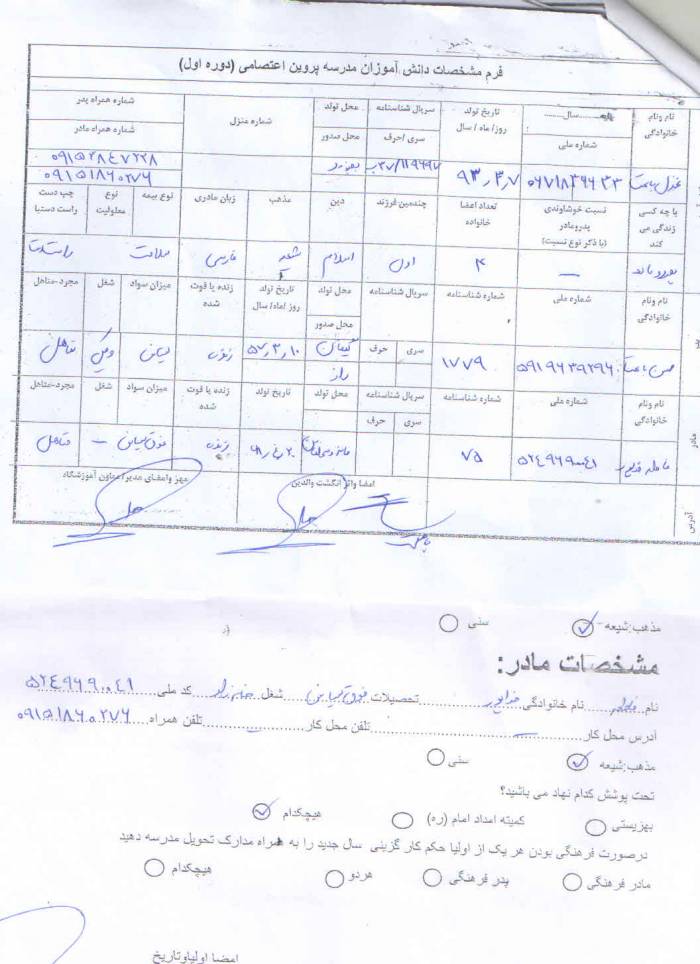 فرم مشخصات دانش آموزان مدرسه پروین اعتصامی (دوره اول)
نام ونام خانوادگی سال شماره ملی تاریخ تولد روز/ ماه / سال سریال شناسنامه سری /حرف محل تولد محل صدور شماره منزل شماره همراه پدر شماره همراه مادر
۹۳٫۳٫۷ ۰۹۱۵۲۸۴۷۲۲۸
۰۹۱۵۱۸۶۰۲۷۶
با چه کسی زندگی می کند نسبت خوشاوندی پدرومادر (با ذکر نوع نسبت) تعداد اعضا خانواده چندمین فرزند دین مذهب زبان مادری نوع بیمه نوع معلولیت چپ دست راست دستبا
— ۴ اول اسلام شیعه فارسی سلامت
نام ونام خانوادگی شماره ملی شماره شناسنامه سریال شناسنامه محل تولد محل صدور تاریخ تولد روز /ماه/ سال زنده یا فوت شده میزان سواد شغل مجرد-متاهل
سری حرف
۵۹۱۹۶۳۹۲۹۶ ۱۷۷۹ ۵۷٫۳٫۱۰ زنده لیسانس متاهل
راز
نام ونام خانوادگی شماره ملی شماره شناسنامه سریال شناسنامه محل تولد تاریخ تولد زنده یا فوت شده میزان سواد شغل مجرد-متاهل
سری حرف
مادر
۵۲۴۹۶۹۰۰۴۱ ۷۵ زنده فوق لیسانس — متاهل
آدرس امضا واثر انگشت والدین مهر وامضای مدیر/معاون آموزشگاه
مذهب:شیعه سنی
مشخصات مادر:
نام نام خانوادگی تحصیلات فوق لیسانس شغل خانه دار کد ملی ۵۲۴۹۶۹۰۰۴۱
آدرس محل کار تلفن محل کار تلفن همراه ۰۹۱۵۱۸۶۰۲۷۶
مذهب:شیعه سنی
تحت پوشش کدام نهاد می باشید؟
بهزیستی کمیته امداد امام (ره) هیچکدام
درصورت فرهنگی بودن هر یک از اولیا حکم کار گزینی سال جدید را به همراه مدارک تحویل مدرسه دهید
مادر فرهنگی پدر فرهنگی هردو هیچکدام
امضا اولیاوتاریخ